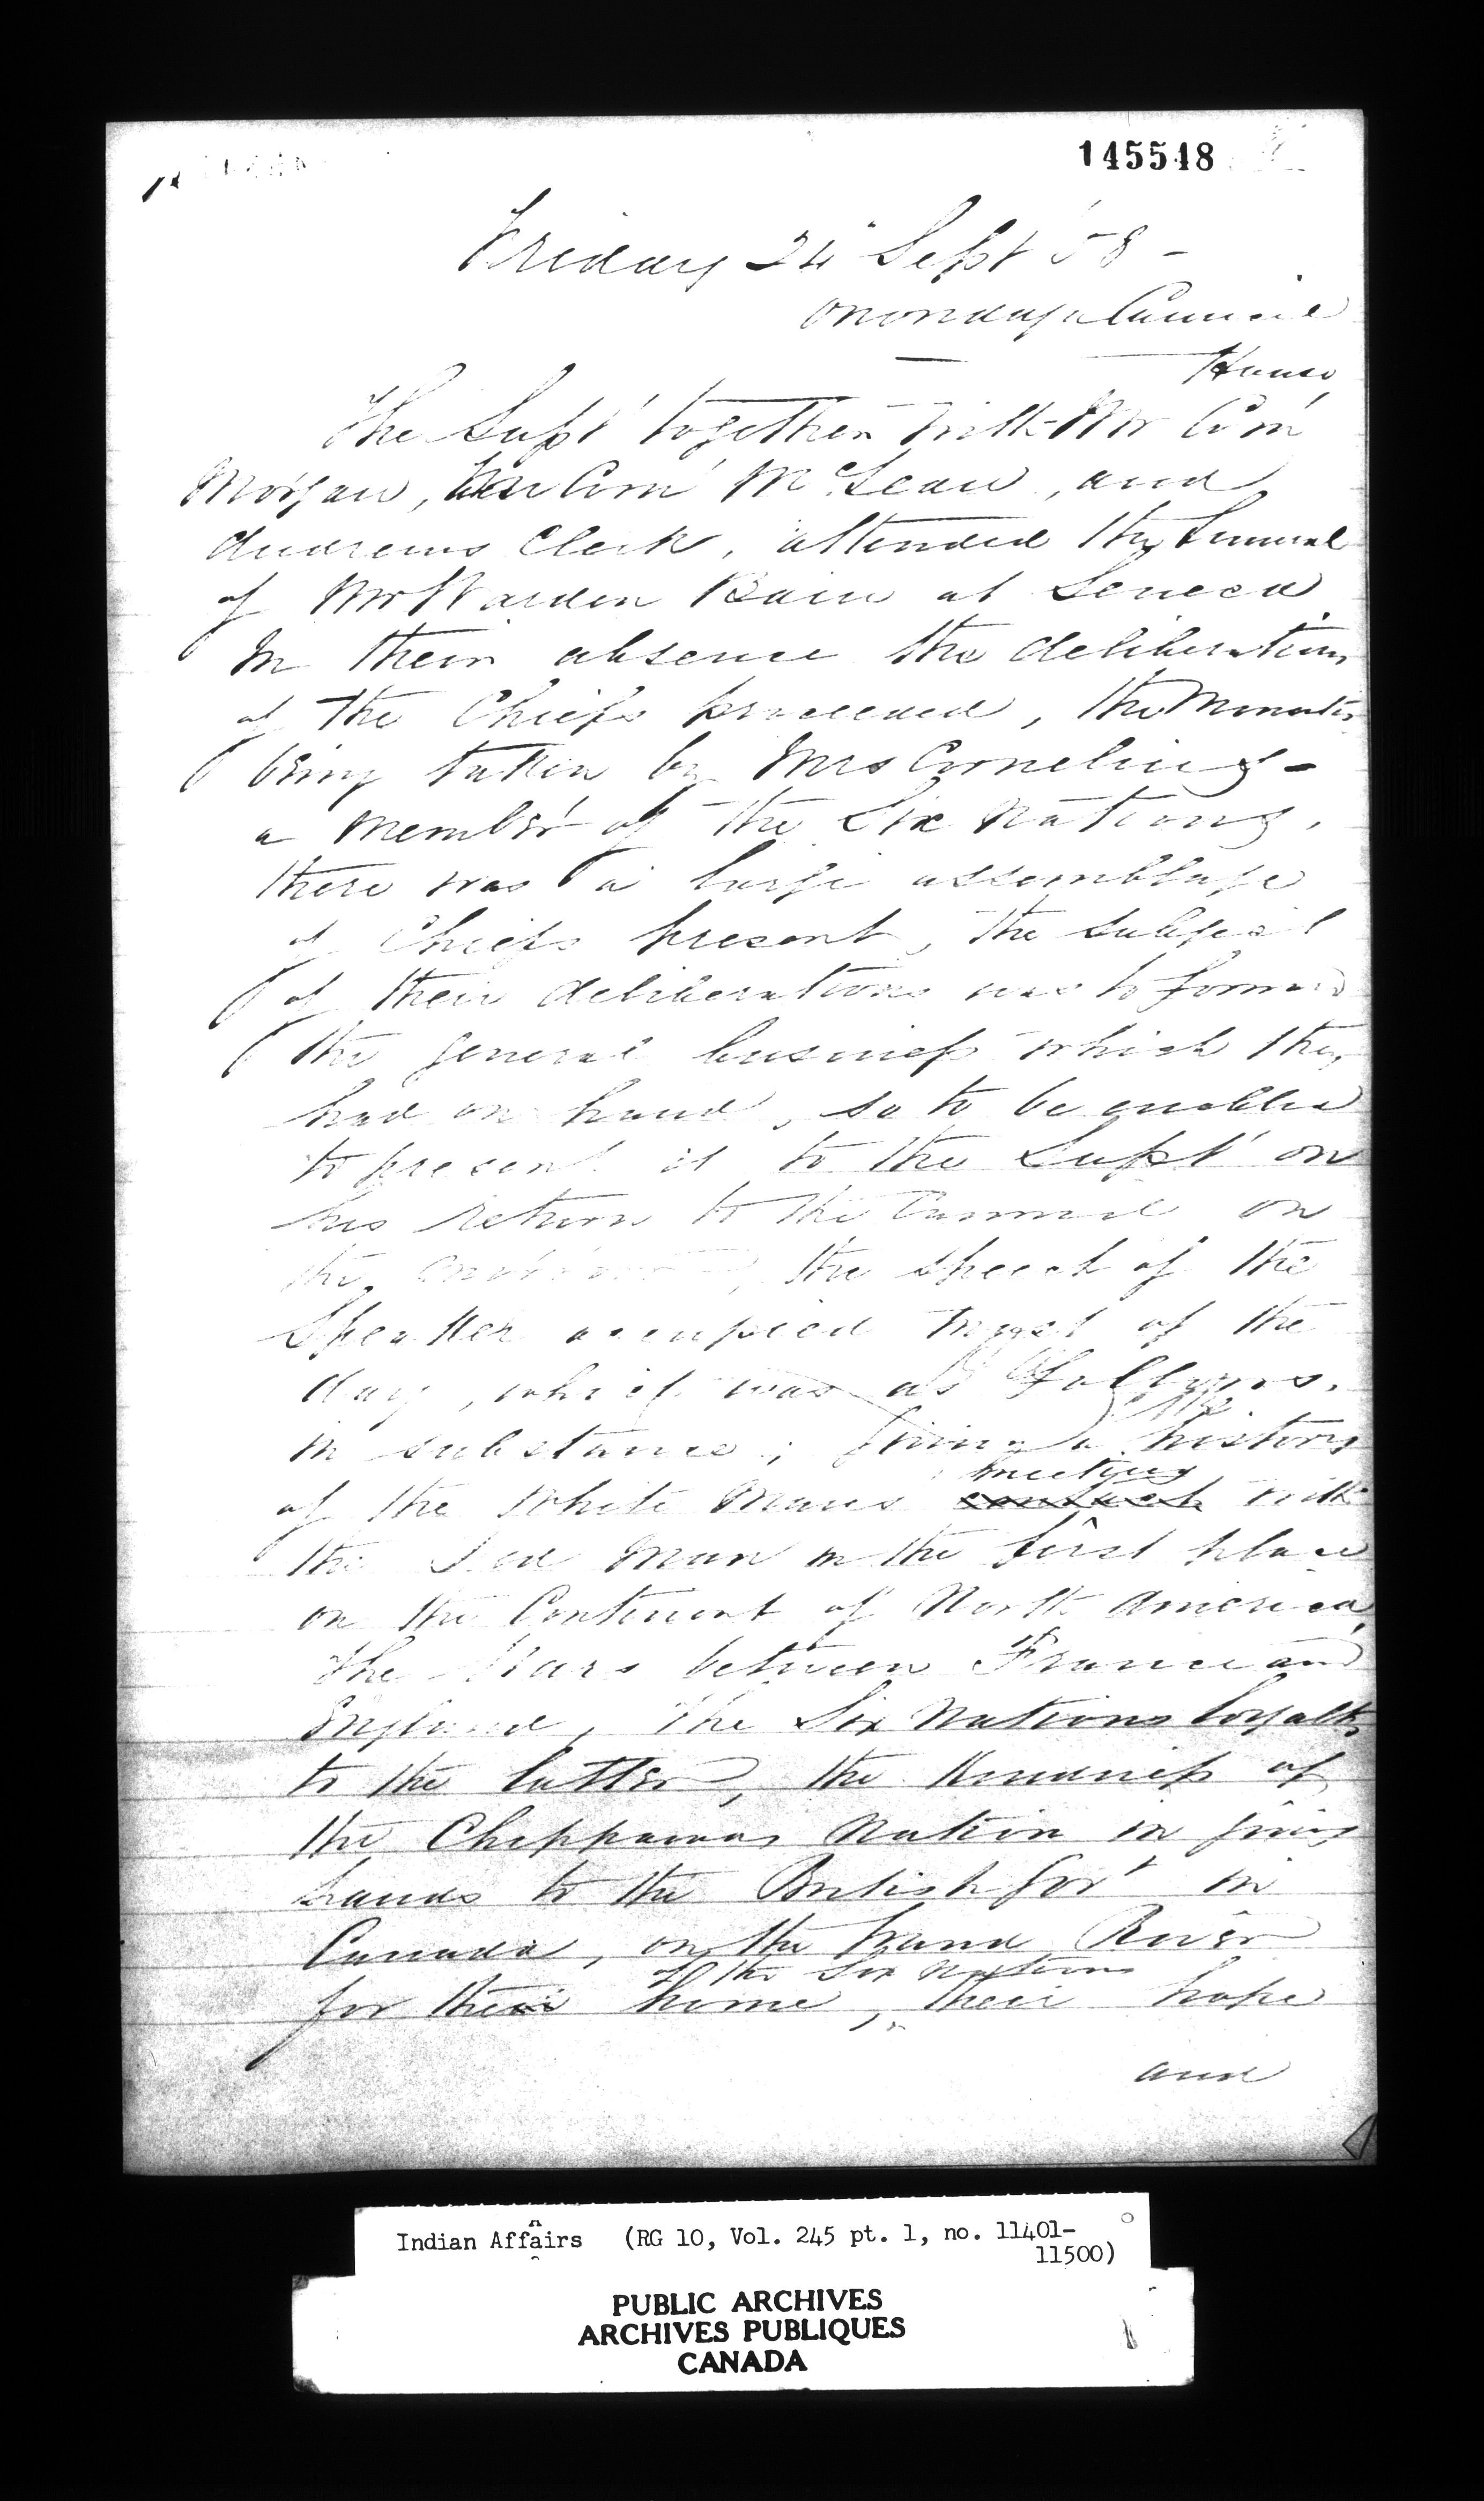 145548
Friday 24" Sept 58 -
Onondaga Council
House
The Supt together with Mr Com
Morgan, Com McLean, and
Andrews Clerk, attended the funeral
of Mr Warden Bain at Seneca
In their absence the deliberations
of the Chiefs proceeded, the Minutes
being taken by Mrs Cornelius -
a member of the Six Nations.
there was a large assemblage
of Chiefs present, the subject
of their deliberations was to forward
the general business which they
had on hand, so to be enabled
to present it to the Supt on
his return to the Council on
the , the speech of the
Speaker occupied most of the
day, which was as follows.
in substance; giving a history
meeting
of the White Mans with
the Red Man in the first place
on the Continent of North America,
The Wars between France and
England, The Six Nations loyalty
to the latter, the kindness of
the Chippawas Nation in giving
lands to the British Govt in
Canada, on the Grand River
of the Six Nations
for their home, their hope
and
Indian Affairs (RG 10, Vol. 245 pt. 1, no. 11401-
11500)
PUBLIC ARCHIVES
ARCHIVES PUBLIQUES
CANADA